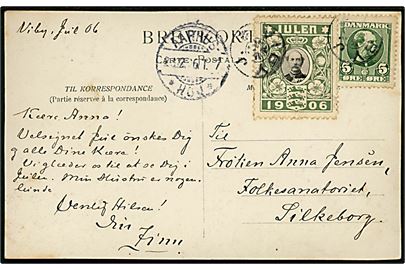 Viby, Jul 06
BREVKORT
JULEN
1906
DANMARK
5 5
ØRE ØRE
TIL KORRESPONDANCE
(Partie réservée à la correspondance)
Kære Anna!
Velsignet Jul ønskes Dig
og alle Dine Kære!
Vi glæder os til at se Dig i
Julen. Min
Venlig Hilsen!
Din
Finn
Til
Frøken Anna Jensen,
Folkesanatoriet,
Silkeborg.